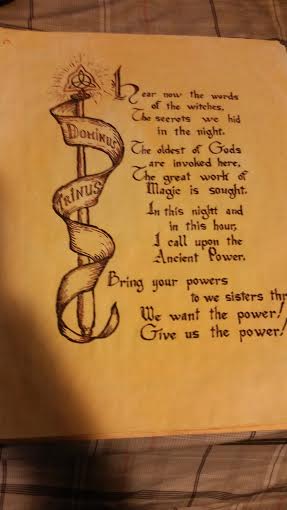 Dominus
Trinus
Hear now the words
of the witches,
The secrets we hid
in the night.
The oldest of Gods
are invoked here,
The great work of
Magic is sought.
In this night and
in this hour,
I call upon the
Ancient Power.
Bring your powers
to we sisters thr
We want the power!
Give us the power!